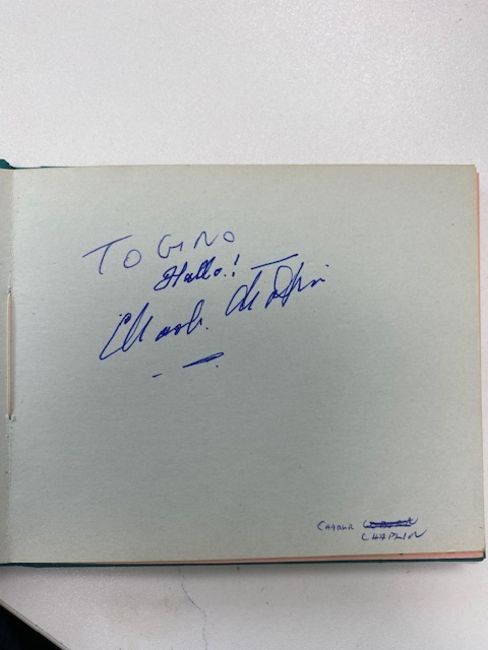 TO GINO
Hallo.!
Charlie Chaplin
CHARLIE
CHAPLIN